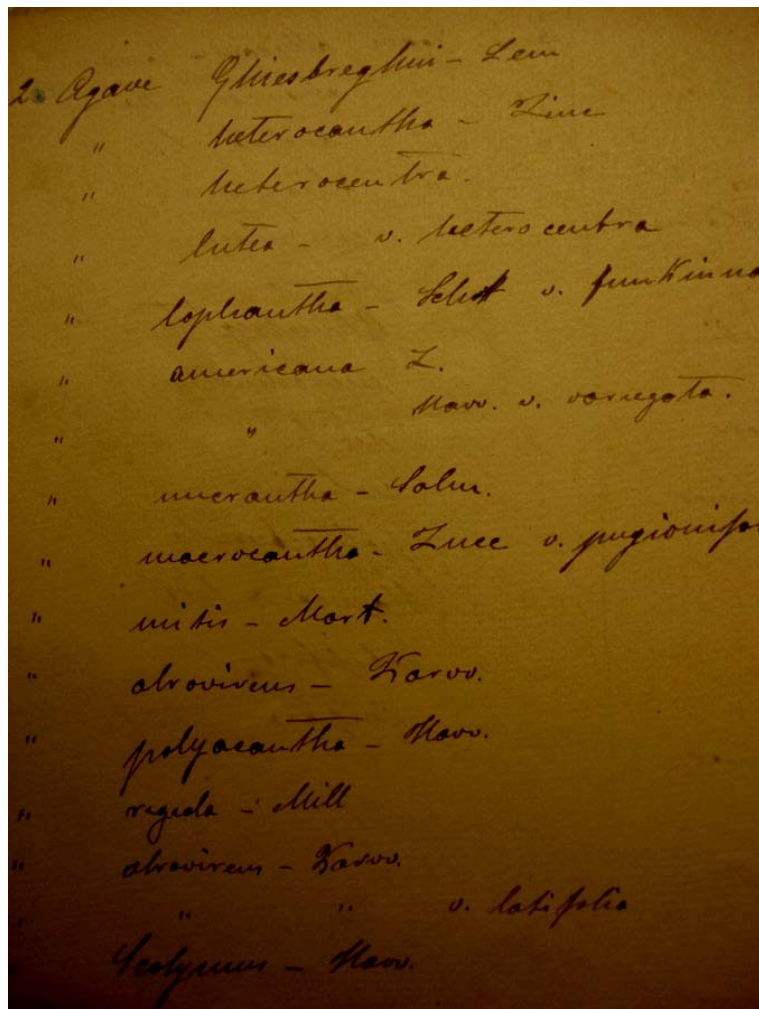 2. Agave Ghiesbreghii - Lem
" heterocantha - Zucc
" heterocentra.
" lutea - v. heterocentra
" lophantha - Scht v. funkinna
" americana L.
" " Haw. v. variegata.
" micrantha - Salm.
" macrocantha - Zucc v. pugionifor
" mitis - Mart.
" atrovirens - Karw.
" polyacantha - Haw.
" rigida - Mill
" atrovirens - Karw.
" " " v. latifolia
Scolymus - Haw.